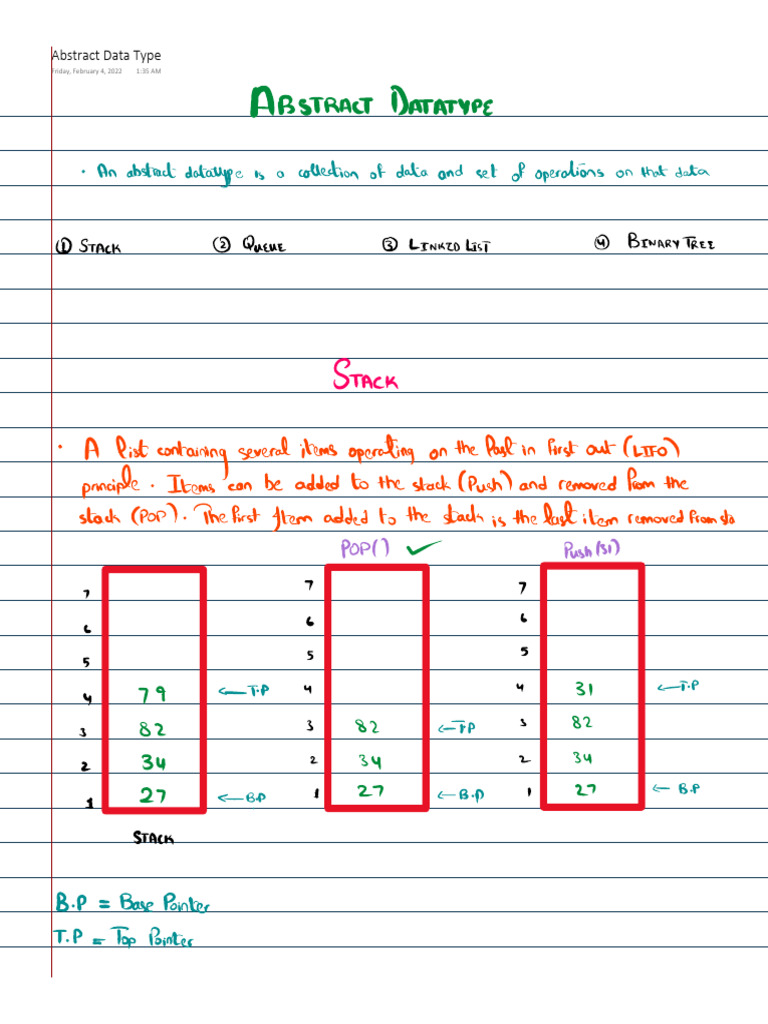 Abstract Data Type
Friday, February 4, 2022 1:35 AM
ABSTRACT DATATYPE
• An abstract datatype is a collection of data and set of operations on that data
① STACK ② QUEUE ③ LINKED LIST ④ BINARY TREE
STACK
• A list containing several items operating on the last in first out (LIFO)
principle. Items can be added to the stack (Push) and removed from the
stack (POP). The first Item added to the stack is the last item removed from sta
POP() ✓ Push(31)
7 7 7
6 6 6
5 5 5
4 79 ←T.P 4 4 31 ←T.P
3 82 3 82 ←T.P 3 82
2 34 2 34 2 34
1 27 ←B.P 1 27 ←B.P 1 27 ←B.P
STACK
B.P = Base Pointer
T.P = Top Pointer